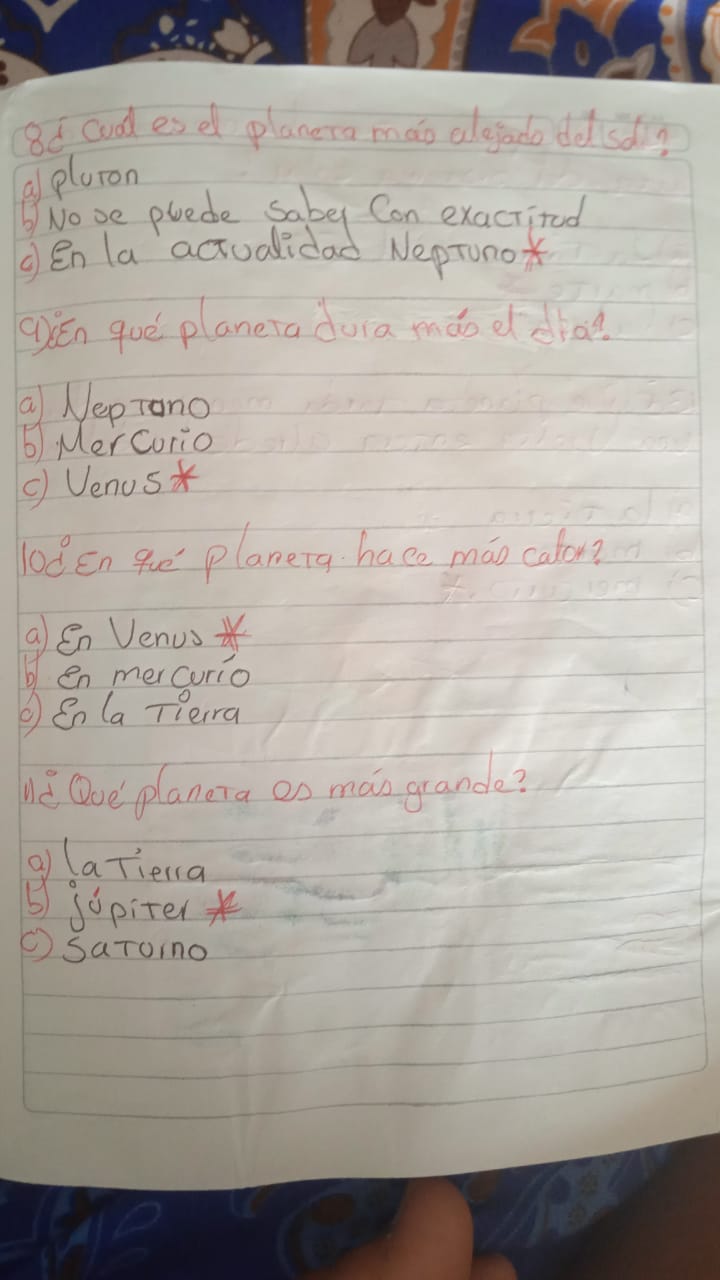 8¿ Cual es el planeta más alejado del sol?
a) pluton
b) No se puede saber Con exactitud
c) En la actualidad Neptuno *
9)¿En qué planeta dura más el día?
a) Neptuno
b) Mercurio
c) Venus *
10¿ En qué planeta hace más calor?
a) En Venus *
b) en mercurio
c) En la Tierra
11¿ Qué planeta es más grande?
a) la Tierra
b) júpiter *
c) Saturno